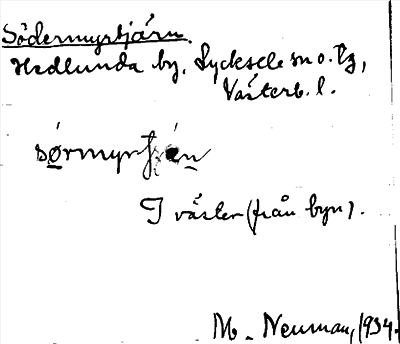 Södermyrtjärn.
Hedlunda by, Lycksele sn o. tg,
Västerb. l.
sørmyrtjén
I väster (från byn).
M. Neuman, 1934.